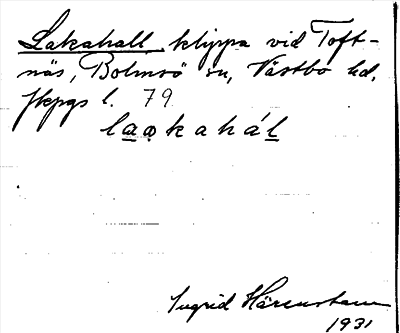 Lakahall, klippa vid Toft-
näs, Bolmsö sn, Västbo hd,
Jkpgs l. 79
laokahál
Ingrid Härenstam
1931